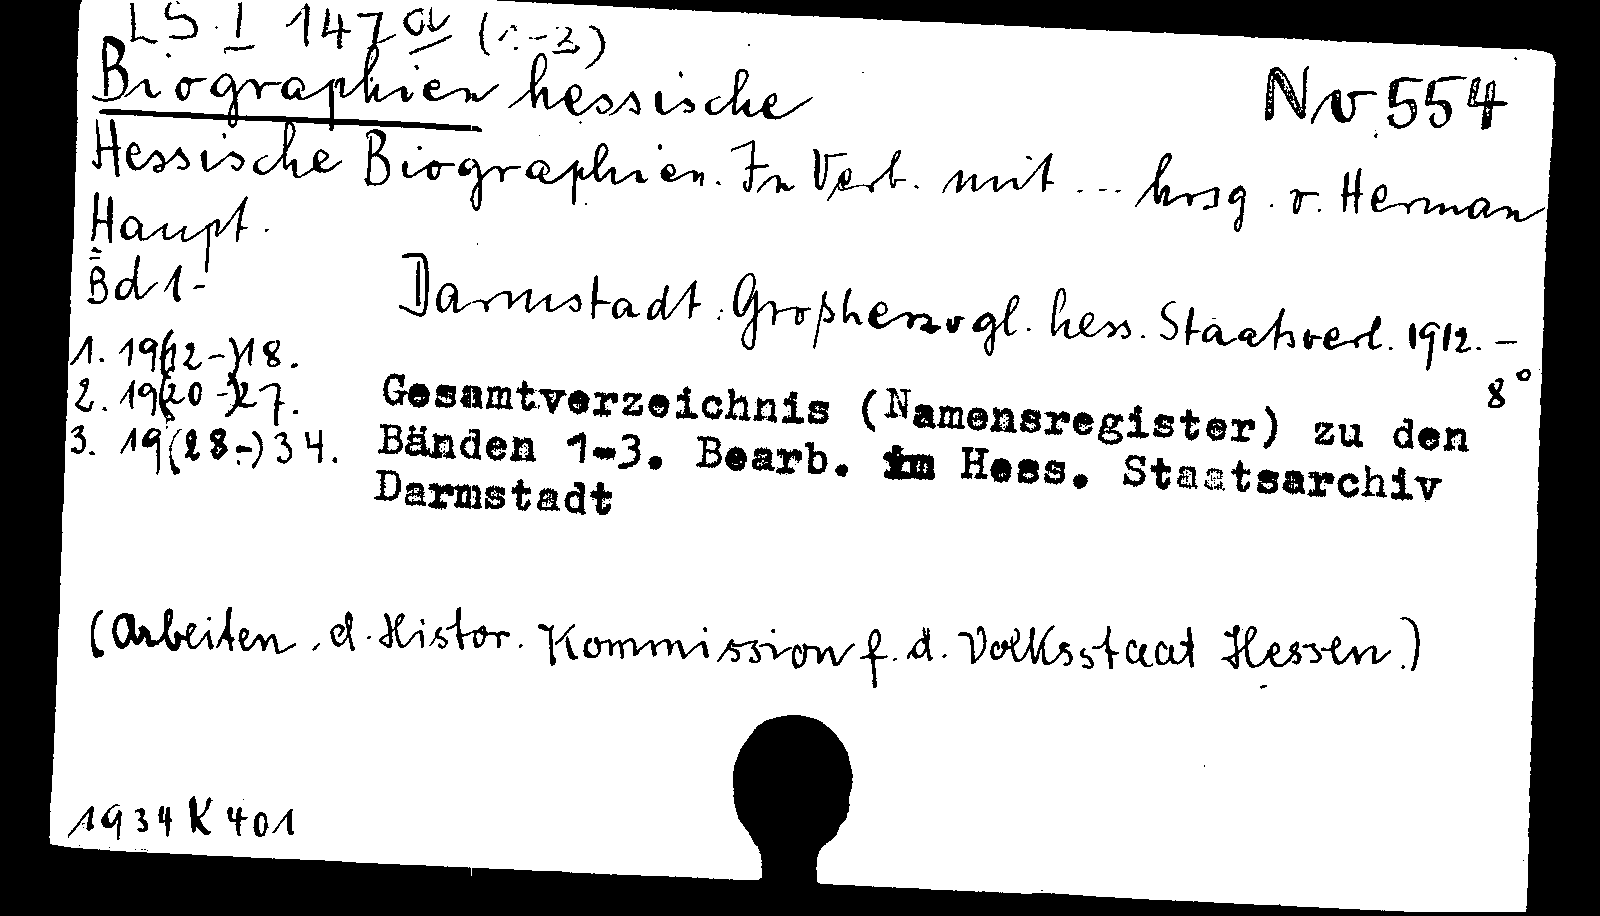 LS I 147 a (1-3)
Biographien hessische
Nv 554
Hessische Biographien. In Verb. mit ... hrsg. v. Herman
Haupt.
Bd 1-
Darmstadt: Großherzogl. hess. Staatsverl. 1912.-
8°
1. 19(12-)18.
2. 19(20-)27.
3. 19(28-)34.
Gesamtverzeichnis (Namensregister) zu den
Bänden 1-3. Bearb. im Hess. Staatsarchiv
Darmstadt
(Arbeiten d. Histor. Kommission f. d. Volksstaat Hessen.)
1934 K 401